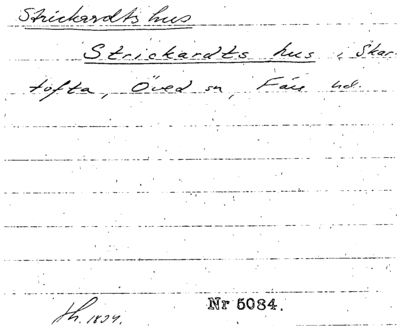 Strickardts hus
Strickardts hus i Skar
tofta, Öved sn, Färs hd.
Nr 5084.
Hh. 1834.